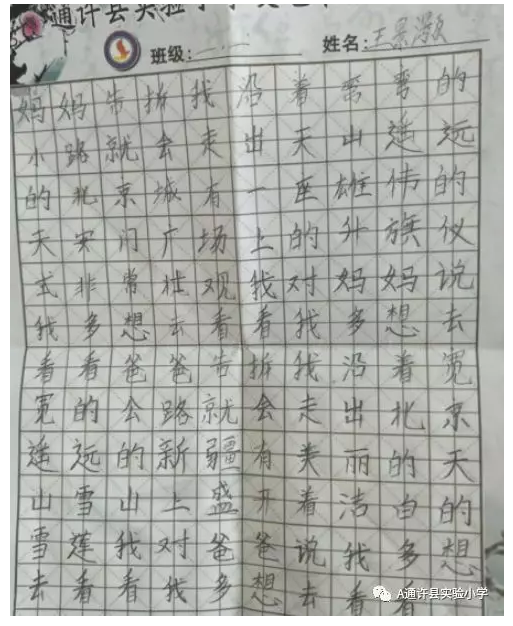 通许县实验小学
班级:一.一 姓名:王景灏
妈妈告拆我沿着弯弯的
小路就会走出天山遥远
的北京城有一座雄伟的
天安门广场上的升旗仪
式非常壮观我对妈妈说
我多想去看看我多想去
看看爸爸告拆我沿着宽
宽的公路就会走出北京
遥远的新疆有美丽的天
山雪山上盛开着洁白的
雪莲我对爸爸说我多想
去看看我多想去看看
A通许县实验小学